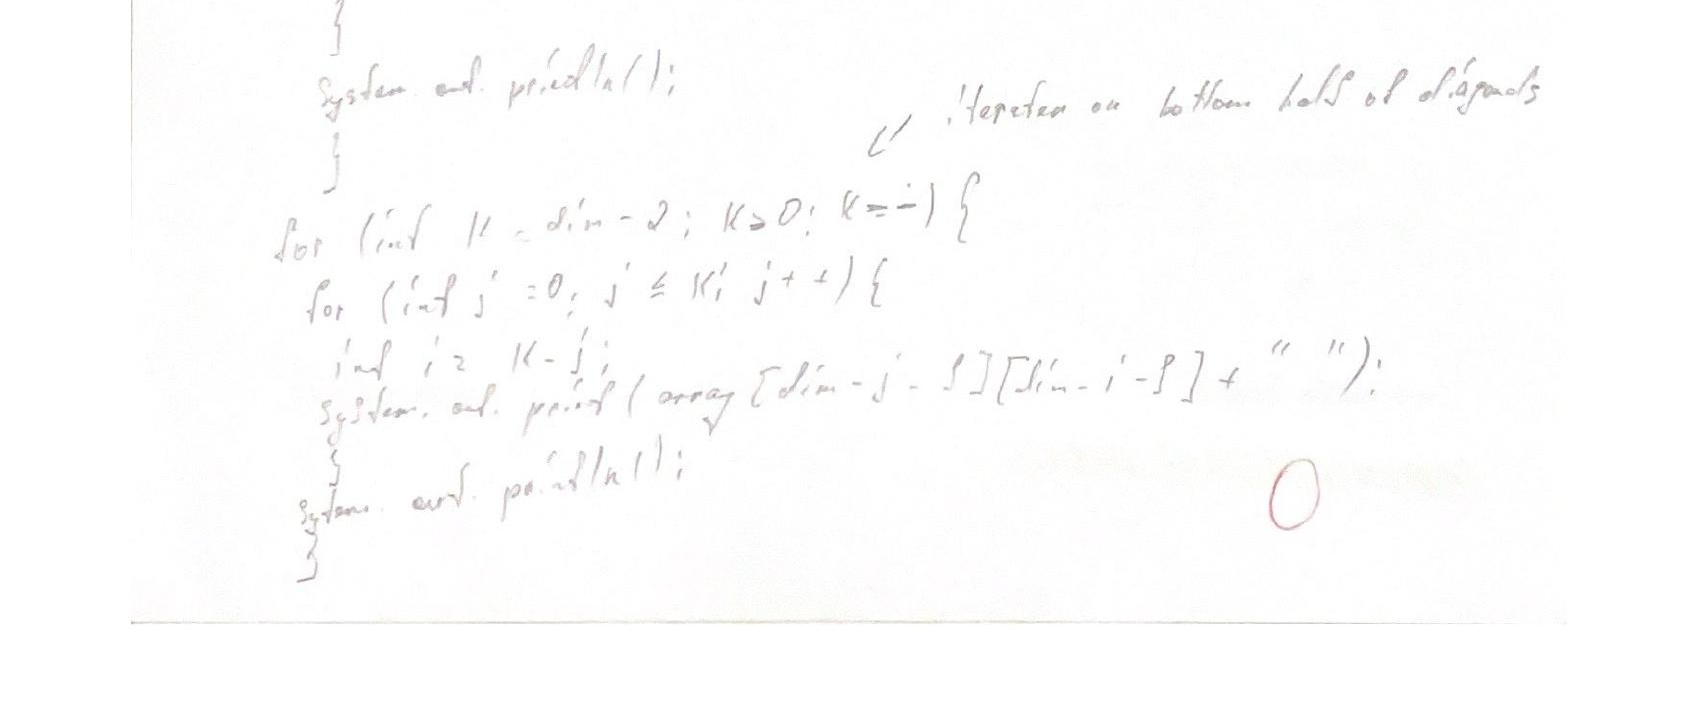 }
System. out. println();
}
iteration on bottom half of diagonals
for (int k = dim - 2; k>0; k--) {
for (int j =0; j ≤ k; j++) {
int i = k-j;
System. out. print( array [dim-j-1][dim-i-1] + " ");
}
System. out. println();
}
0